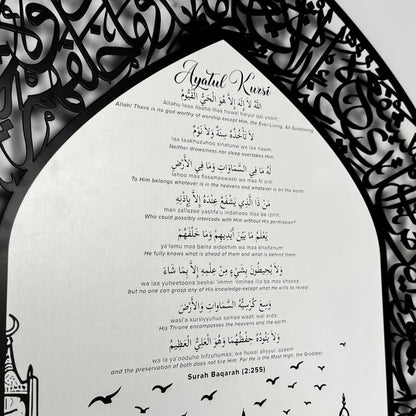 Ayatul Kursi
اللَّهُ لاَ إِلَهَ إِلاَّ هُوَ الْحَيُّ الْقَيُّومُ
Allahu laaa ilaaha illaa huwal haiyul qai-yoom;
Allah! There is no god worthy of worship except Him, the Ever-Living, All-Sustaining
لَا تَأْخُذُهُ سِنَةٌ وَلَا نَوْمٌ
laa taakhuzuhoo sinatunw wa laa naum;
Neither drowsiness nor sleep overtakes Him.
لَهُ مَا فِي السَّمَاوَاتِ وَمَا فِي الأَرْضِ
lahoo maa fissamaawaati wa maa fil ard;
To Him belongs whatever is in the heavens and whatever is on the earth.
مَنْ ذَا الَّذِي يَشْفَعُ عِنْدَهُ إِلاَّ بِإِذْنِهِ
man zallazee yashfa'u indahooo illaa be iznih;
Who could possibly intercede with Him without His permission?
يَعْلَمُ مَا بَيْنَ أَيْدِيهِمْ وَمَا خَلْفَهُمْ
ya'lamu maa baina aideehim wa maa khalfahum;
He fully knows what is ahead of them and what is behind them
وَلاَ يُحِيطُونَ بِشَيْءٍ مِنْ عِلْمِهِ إِلاَّ بِمَا شَاءَ
wa laa yuheetoona beshai 'immin 'ilmihee illa be maa shaaaa;
but no one can grasp any of His knowledge-except what He wills to reveal.
وَسِعَ كُرْسِيُّهُ السَّمَاوَاتِ وَالأَرْضَ
wasi'a kursiyyuhus samaa waati wal arda;
His Throne encompasses the heavens and the earth.
وَلاَ يَئُودُهُ حِفْظُهُمَا وَهُوَ الْعَلِيُّ الْعَظِيمُ
wa la ya'ooduho hifzuhumaa; wa huwal aliyyul 'azeem
and the preservation of both does not tire Him. For He is the Most High, the Greatest
Surah Baqarah (2:255)